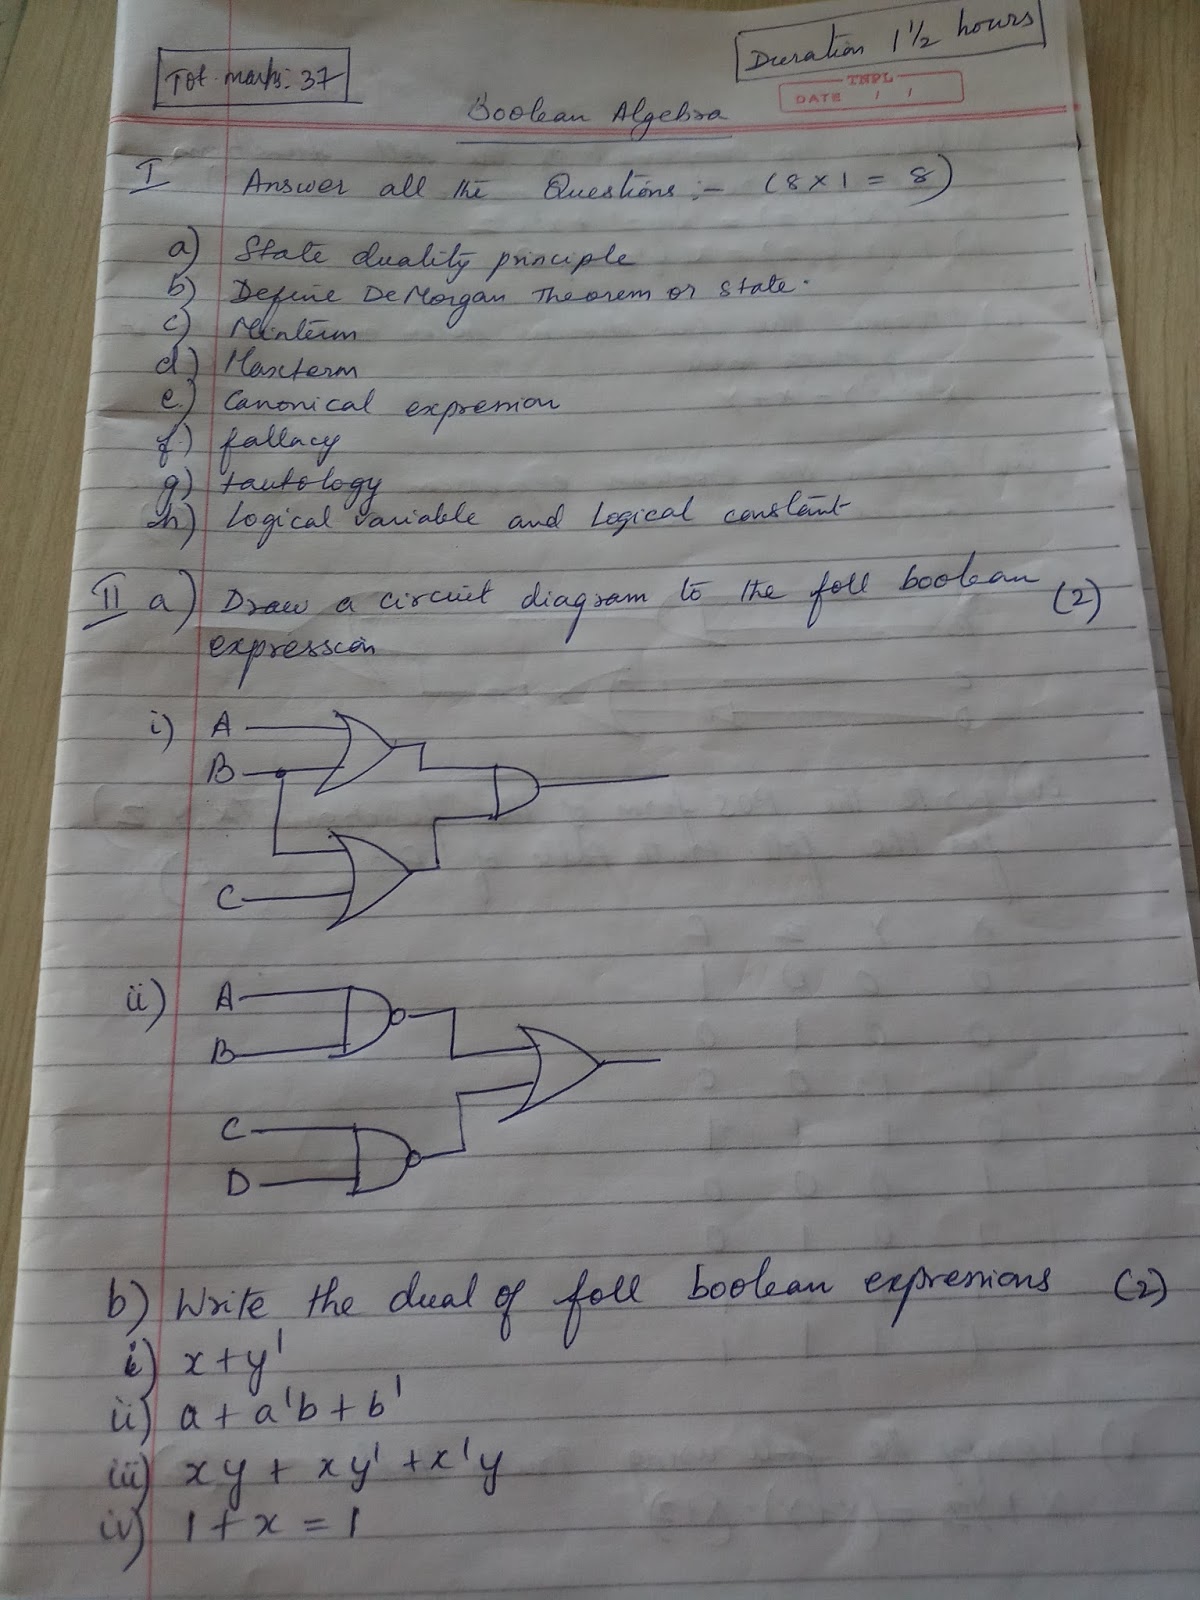 Tot. marks: 37
Duration 1 1/2 hours
TNPL
DATE / /
Boolean Algebra
I Answer all the Questions :- (8 x 1 = 8)
a) State duality principle
b) Define DeMorgan Theorem or state.
c) Minterm
d) Maxterm
e) Canonical expression
f) fallacy
g) tautology
h) Logical variable and Logical constant
II a) Draw a circuit diagram to the foll boolean (2)
expression
i) A
B
C
ii) A
B
C
D
b) Write the dual of foll boolean expressions (2)
i) x + y'
ii) a + a'b + b'
iii) xy + xy' + x'y
iv) 1 + x = 1